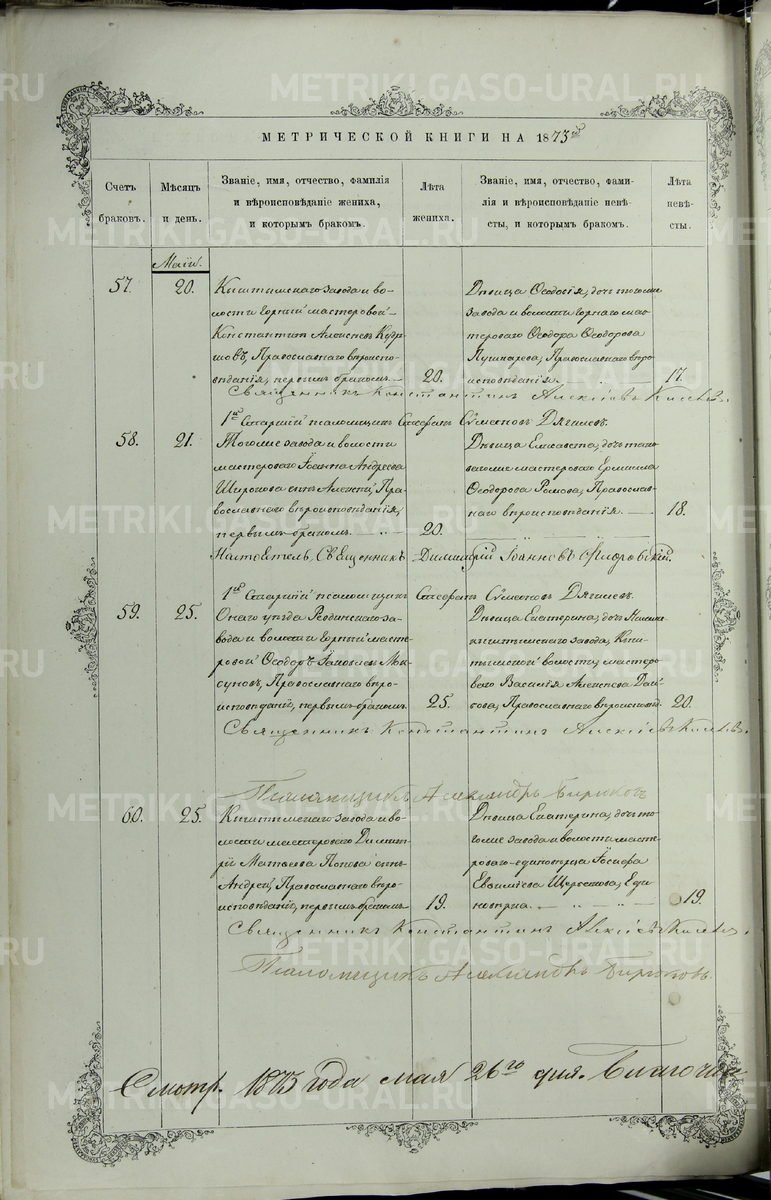 МЕТРИЧЕСКОЙ КНИГИ НА 1873й
Счетъ браковъ.
Мѣсяцъ и день.
Званіе, имя, отчество, фамилія и вѣроисповѣданіе жениха, и которымъ бракомъ.
Лѣта жениха.
Званіе, имя, отчество, фамилія и вѣроисповѣданіе невѣсты, и которымъ бракомъ.
Лѣта невѣсты.
Маій.
57. 20.
Кыштымскаго завода и во-
лости горный мастеровой
Константинъ Алексѣевъ
Православнаго вѣроиспо-
вѣданія, первымъ бракомъ.
20.
Дѣвица Ѳеодосія, дочь тогоже
завода и волости горнаго мас-
тероваго Ѳеодора Ѳеодорова
Пушкарева, Православнаго вѣро-
исповѣданія.
17.
Священникъ Константинъ Алексіевъ
1й Старшій псаломщикъ Стефанъ Сѵмеоновъ Дягилевъ.
58. 21.
Тогоже завода и волости
мастероваго Іоанна Андреева
Широкова сынъ Алексій, Пра-
вославнаго вѣроисповѣданія,
первымъ бракомъ.
20.
Дѣвица Елисавета, дочь тако-
вагоже мастероваго Ермила
Ѳеодорова Православ-
наго вѣроисповѣданія.
18.
Настоятель, Священникъ Димитрій Іоанновъ
1й Старшій псаломщикъ Стефанъ Сѵмеоновъ Дягилевъ.
59. 25.
Онаго уѣзда за-
вода и волости горный масте-
ровой Ѳеодоръ Іаковлевъ
Православнаго вѣро-
исповѣданія, первымъ бракомъ
25.
Дѣвица Екатерина, дочь
завода, Кыш-
тымской волости, мастеро-
ваго Василія Алексѣева
Православнаго вѣроисповѣд.
20.
Священникъ Константинъ Алексіевъ
Псаломщикъ Александръ Бирюковъ
60. 25.
Кыштымскаго завода и во-
лости мастероваго Димит-
рія Матвѣева Попова сынъ
Андрей, Православнаго вѣро-
исповѣданія, первымъ бракомъ
19.
Дѣвица Екатерина, дочь то-
гоже завода и волости масте-
роваго единовѣрца Іосифа
Евѳиміева Еди-
новѣрка.
19.
Священникъ Константинъ Алексіевъ
Псаломщикъ Александръ Бирюковъ.
Смотр. 1873 года мая 26го дня. Благочин
METRIKI.GASO-URAL.RU